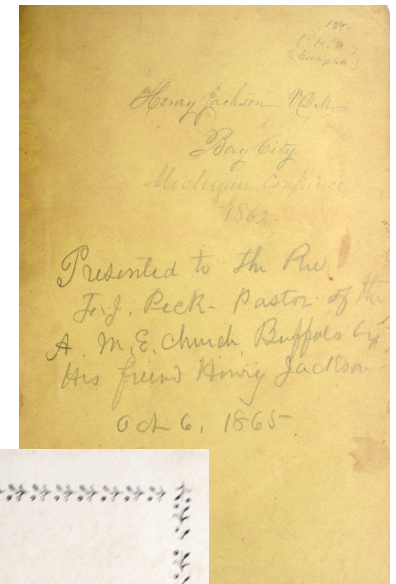 Henry Jackson
Bay City.
Michigan Confrence
1862
Presented to the Rev
F. J. Peck - Pastor of the
A. M. E. Church Buffalo by
His freind Henry Jackson
Oct 6, 1865